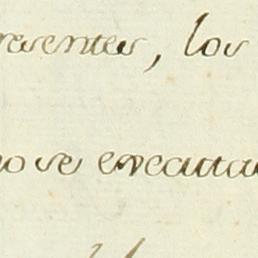 resentes, los
no se executa